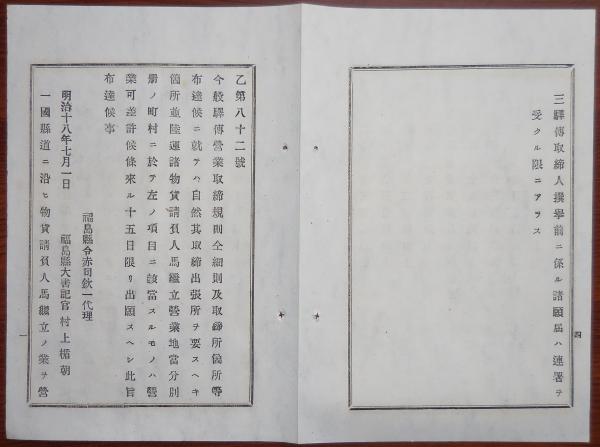 三驛傳取締人撰擧前ニ係ル諸願届ハ連署ヲ
受クル限ニアラス
四
乙第八十二號
今般驛傳營業取締規則仝細則及取締所箇所等
布達候ニ就テハ自然其取締出張所ヲ要スヘキ
箇所並陸運諸物貨請負人馬繼立營業地當分別
册ノ町村ニ於テ左ノ項目ニ該當スルモノハ營
業可差許候條來ル十五日限リ出願スヘシ此旨
布達候事
福島縣令赤司欽一代理
明治十八年七月一日
福島縣大書記官 村上楯朝
一國縣道ニ沿ヒ物貨請負人馬繼立ノ業ヲ營
一